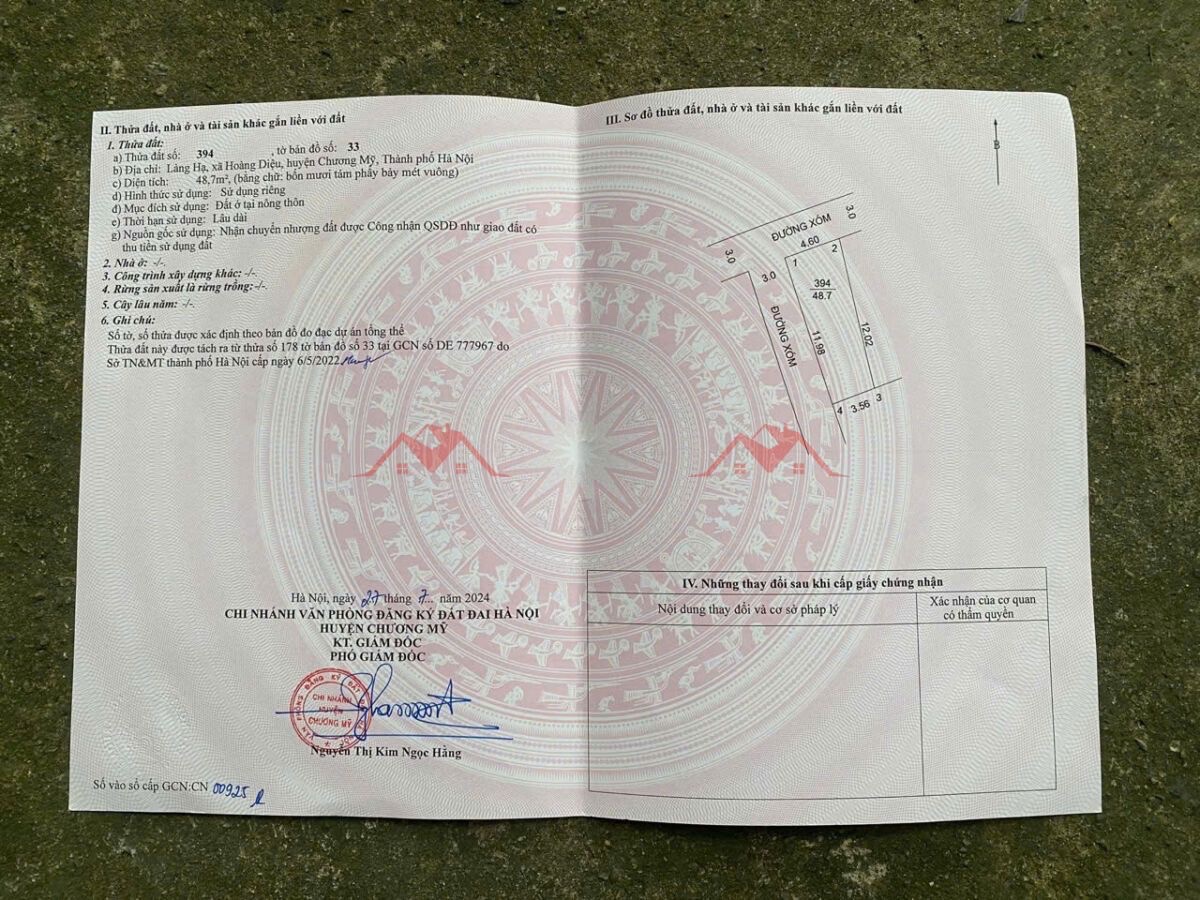 II. Thửa đất, nhà ở và tài sản khác gắn liền với đất
1. Thửa đất:
a) Thửa đất số: 394 , tờ bản đồ số: 33
b) Địa chỉ: Làng Hạ, xã Hoàng Diệu, huyện Chương Mỹ, Thành phố Hà Nội
c) Diện tích: 48,7m², (bằng chữ: bốn mươi tám phẩy bảy mét vuông)
d) Hình thức sử dụng: Sử dụng riêng
đ) Mục đích sử dụng: Đất ở tại nông thôn
e) Thời hạn sử dụng: Lâu dài
g) Nguồn gốc sử dụng: Nhận chuyển nhượng đất được Công nhận QSDĐ như giao đất có
thu tiền sử dụng đất
2. Nhà ở: -/-.
3. Công trình xây dựng khác: -/-.
4. Rừng sản xuất là rừng trồng:-/-.
5. Cây lâu năm: -/-.
6. Ghi chú:
Số tờ, số thửa được xác định theo bản đồ đo đạc dự án tổng thể
Thửa đất này được tách ra từ thửa số 178 tờ bản đồ số 33 tại GCN số DE 777967 do
Sở TN&MT thành phố Hà Nội cấp ngày 6/5/2022.
Hà Nội, ngày 27 tháng 7... năm 2024
CHI NHÁNH VĂN PHÒNG ĐĂNG KÝ ĐẤT ĐAI HÀ NỘI
HUYỆN CHƯƠNG MỸ
KT. GIÁM ĐỐC
PHÓ GIÁM ĐỐC
VĂN PHÒNG ĐĂNG KÝ ĐẤT
CHI NHÁNH
HUYỆN
CHƯƠNG MỸ
Nguyễn Thị Kim Ngọc Hằng
Số vào sổ cấp GCN:CN 00925
III. Sơ đồ thửa đất, nhà ở và tài sản khác gắn liền với đất
B
3.0
ĐƯỜNG XÓM
3.0
4.60
3.0
1
2
394
48.7
ĐƯỜNG XÓM
11.98
12.02
4
3.56
3
IV. Những thay đổi sau khi cấp giấy chứng nhận
Nội dung thay đổi và cơ sở pháp lý
Xác nhận của cơ quan
có thẩm quyền